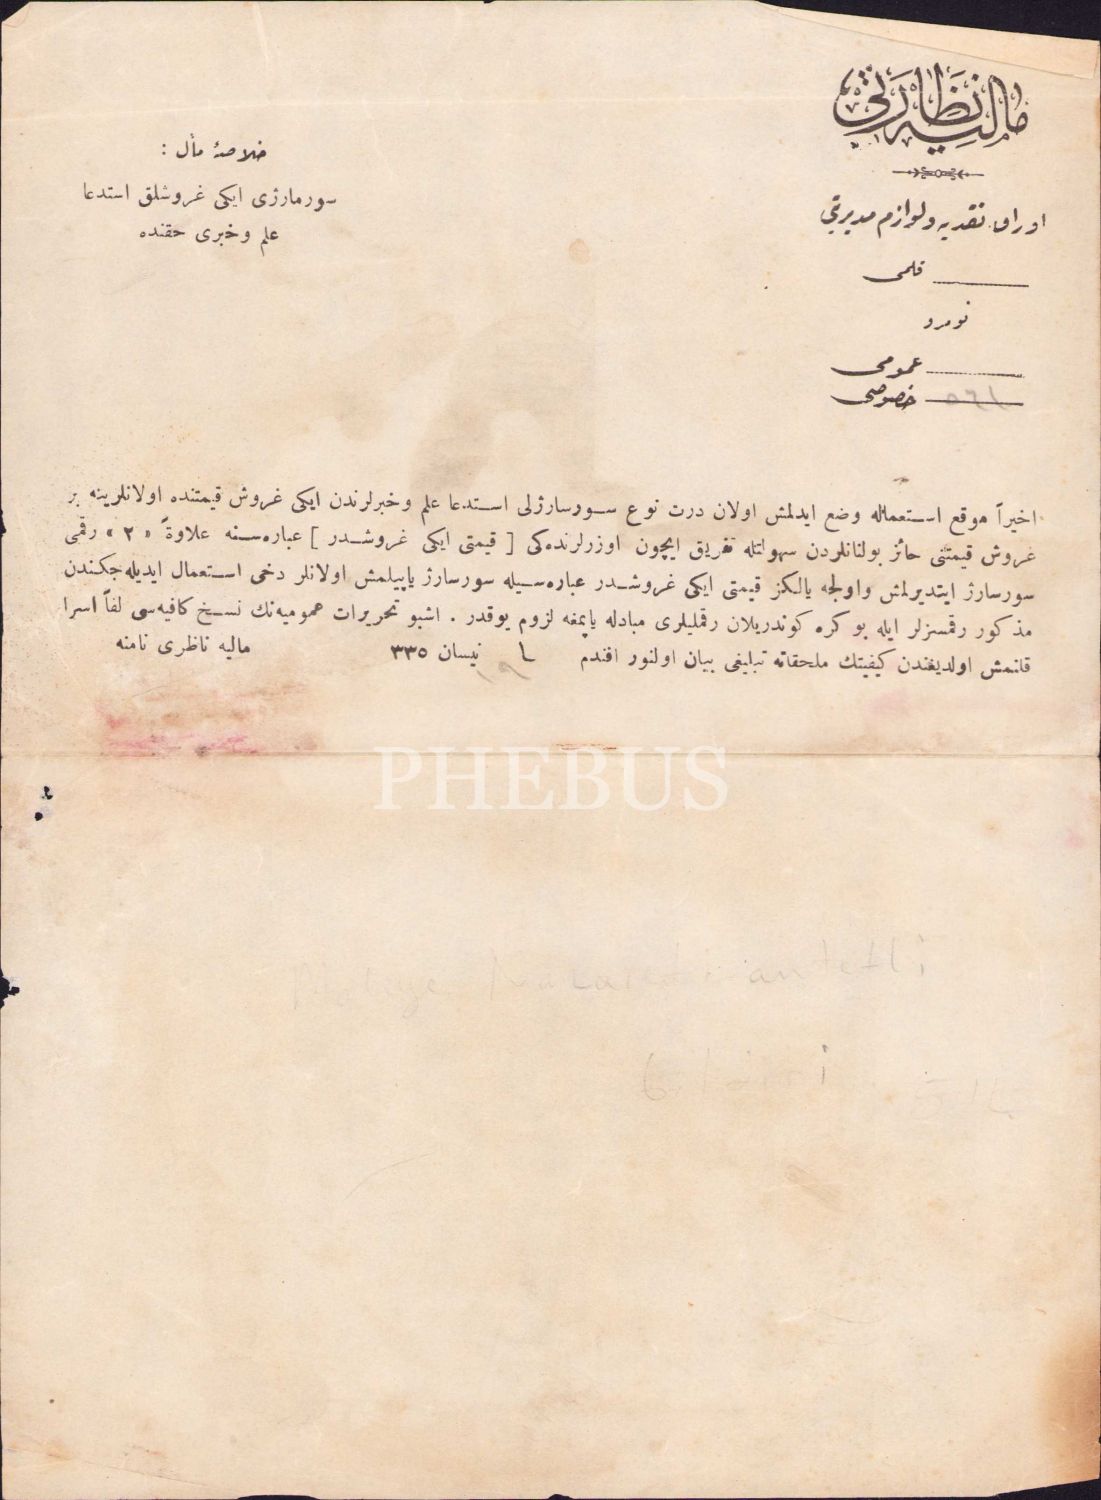 مالیه نظارتی
اوراق نقدیه و لوازم مدیریتی
قلمی
نومرو
عمومی
خصوصی
خلاصۀ مآل :
سورمارژی ایكی غروشلق استدعا
علم و خبری حقنده
اخیراً موقع استعماله وضع ایدلمش اولان درت نوع سورسارژلی استدعا علم و خبرلرندن ایكی غروش قیمتنده اولانلرینه بر
غروش قیمتنی حائز بولنانلردن سهولتله تفریق ایچون اوزرلرنده‌كی [ قیمتی ایكی غروشدر ] عباره‌سنه علاوةً « ٢ » رقمی
سورسارژ ایتدیرلمش واولجه یالكز قیمتی ایكی غروشدر عباره‌سیله سورسارژ یاپیلمش اولانلر دخی استعمال ایدیله‌جكندن
مذكور رقمسزلر ایله بو كره كوندریلان رقملیلری مبادله یاپمغه لزوم یوقدر . اشبو تحریرات عمومیه‌نك نسخ كافیه‌سی لفاً اسرا
قلنمش اولدیغندن كیفیتك ملحقاته تبلیغی بیان اولنور افندم نیسان ٣٣٥ مالیه ناظری نامنه
PHEBUS
Maliye Nazareti antetli